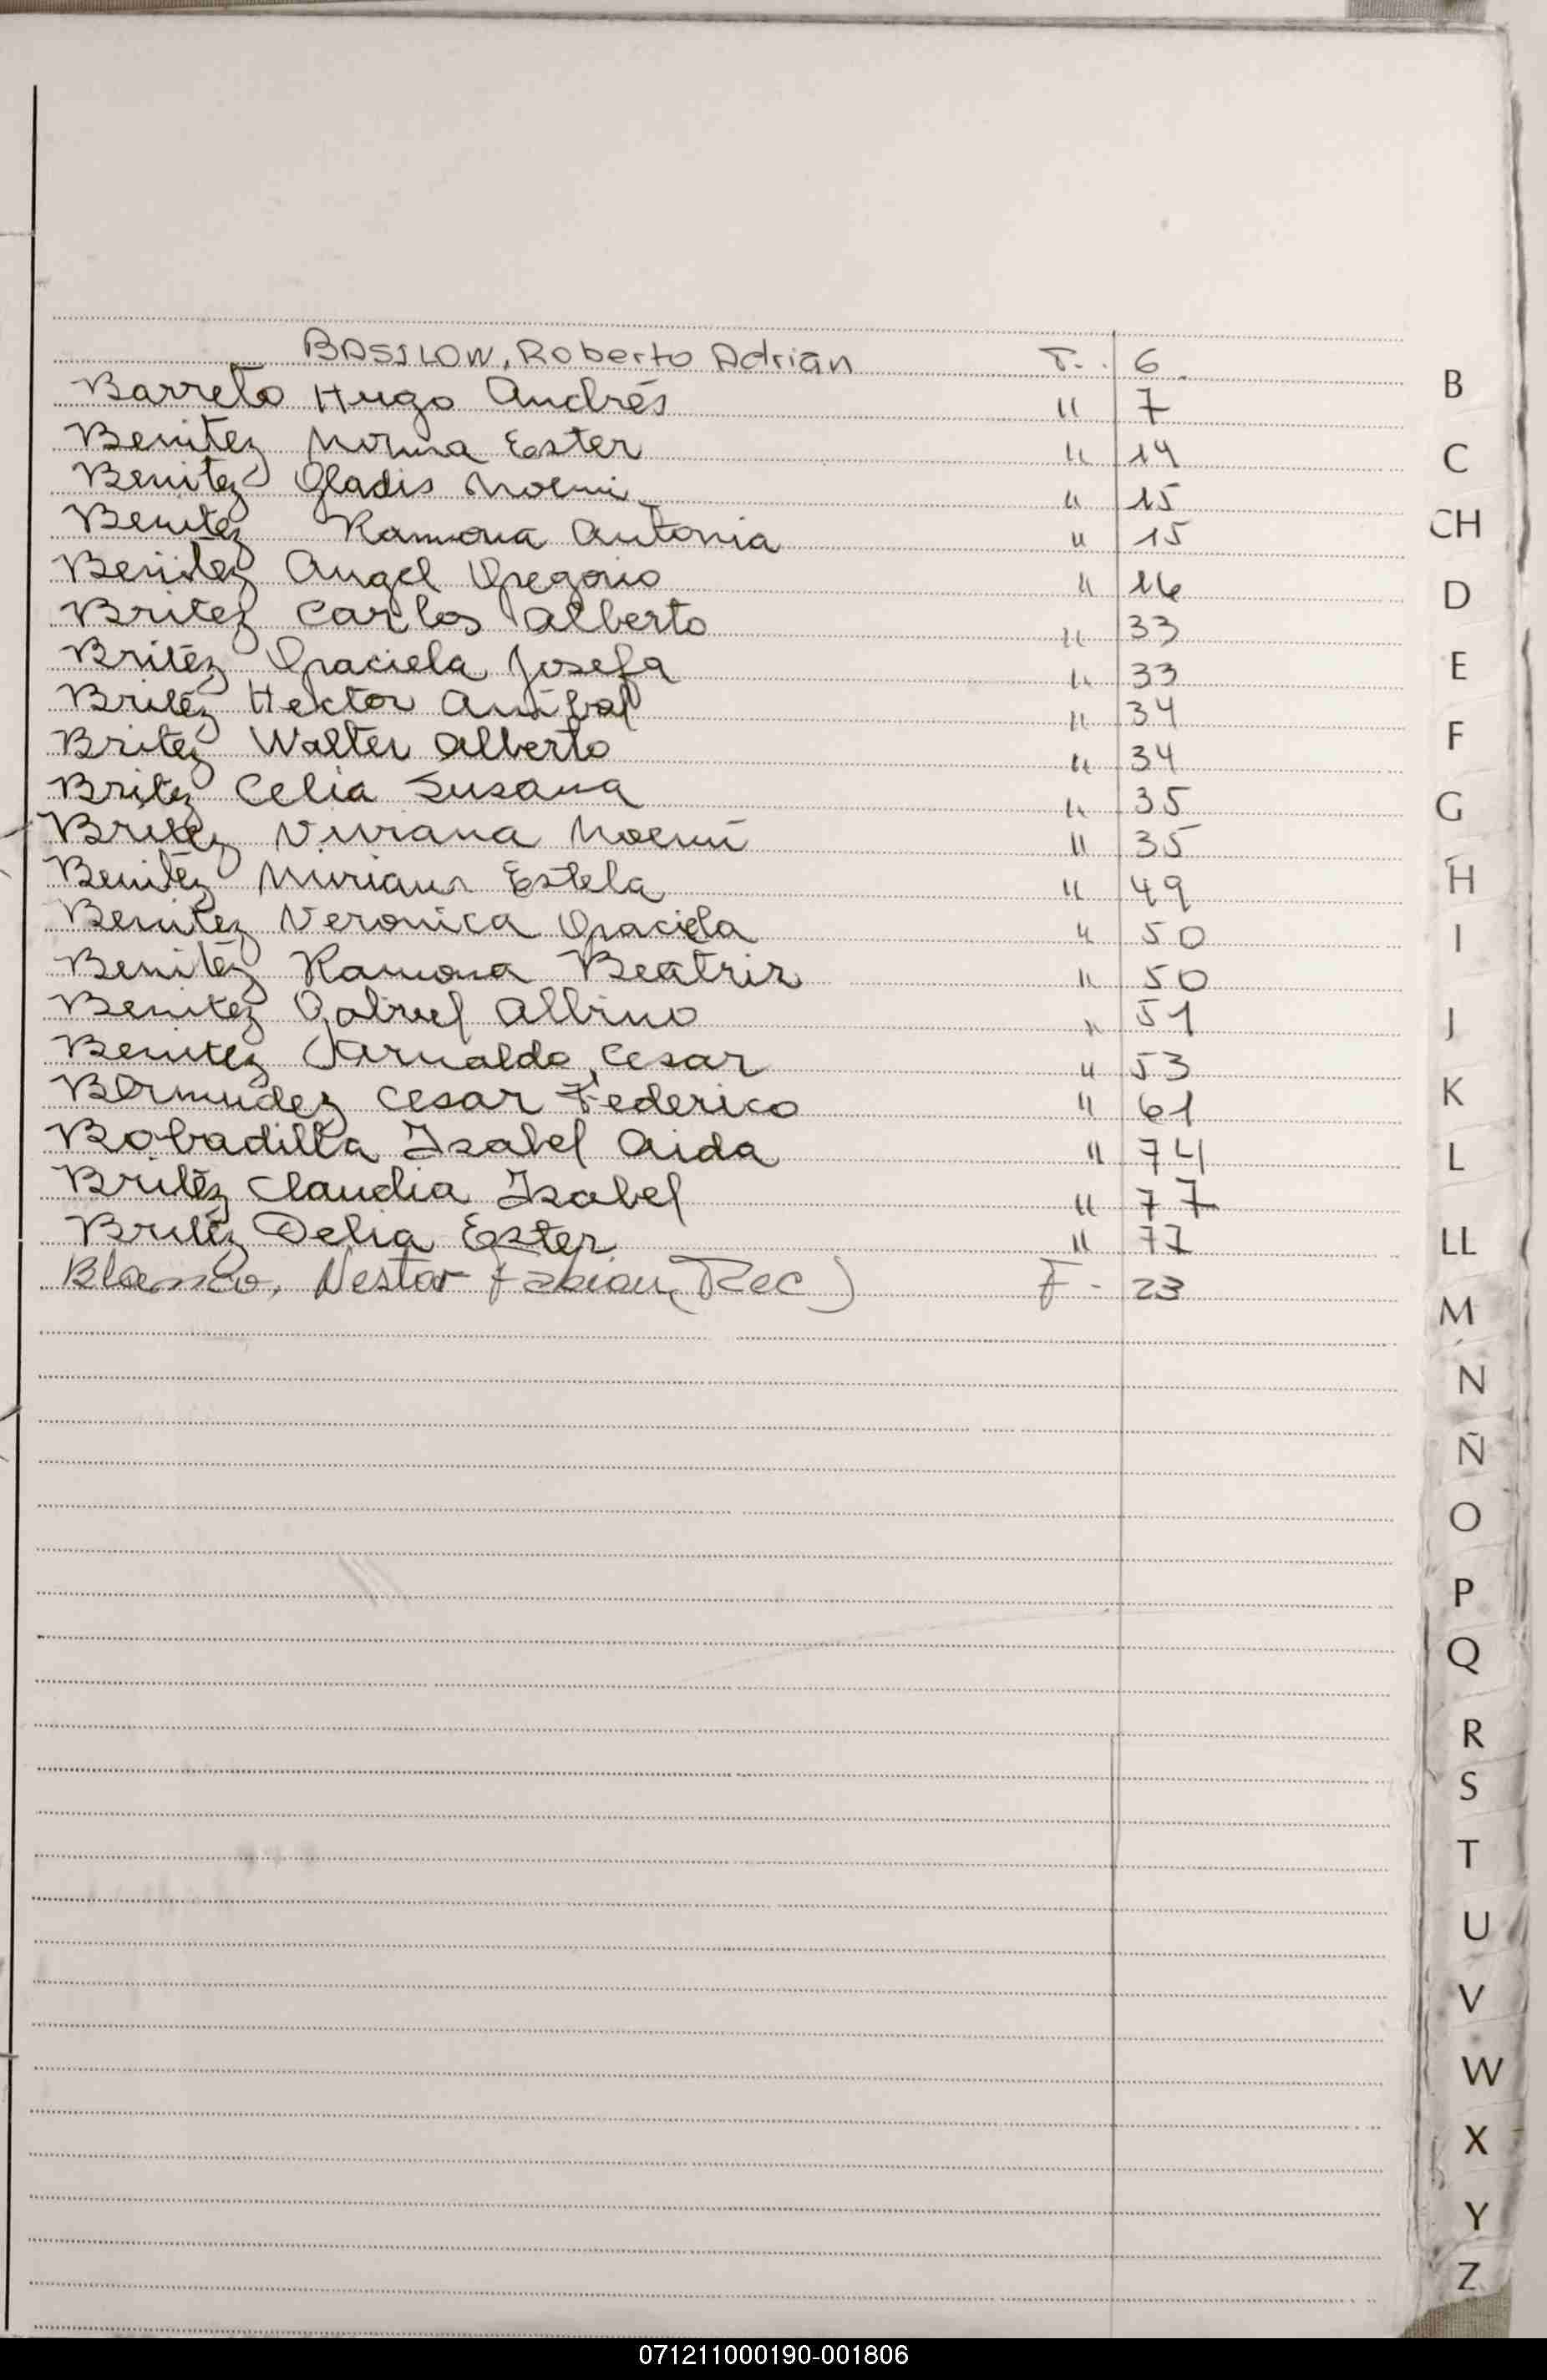 BASILOW, Roberto Adrián F. 6
Barreto Hugo Andrés " 7
Benitez Norma Ester " 14
Benitez Gladis Noemi " 15
Benitez Ramona Antonia " 15
Benitez Angel Gregorio " 16
Britez Carlos Alberto " 33
Britez Graciela Josefa " 33
Britez Hector Aníbal " 34
Britez Walter Alberto " 34
Britez Celia Susana " 35
Britez Viviana Noemí " 35
Benitez Miriam Estela " 49
Benitez Veronica Graciela " 50
Benitez Ramona Beatriz " 50
Benitez Gabriel Albino " 51
Benitez Arnaldo Cesar " 53
Bermudez Cesar Federico " 61
Bobadilla Isabel Aida " 74
Britez Claudia Isabel " 77
Britez Delia Ester " 77
Blanco, Nestor Fabian (Rec) F- 23
B
C
CH
D
E
F
G
H
I
J
K
L
LL
M
N
Ñ
O
P
Q
R
S
T
U
V
W
X
Y
Z
071211000190-001806